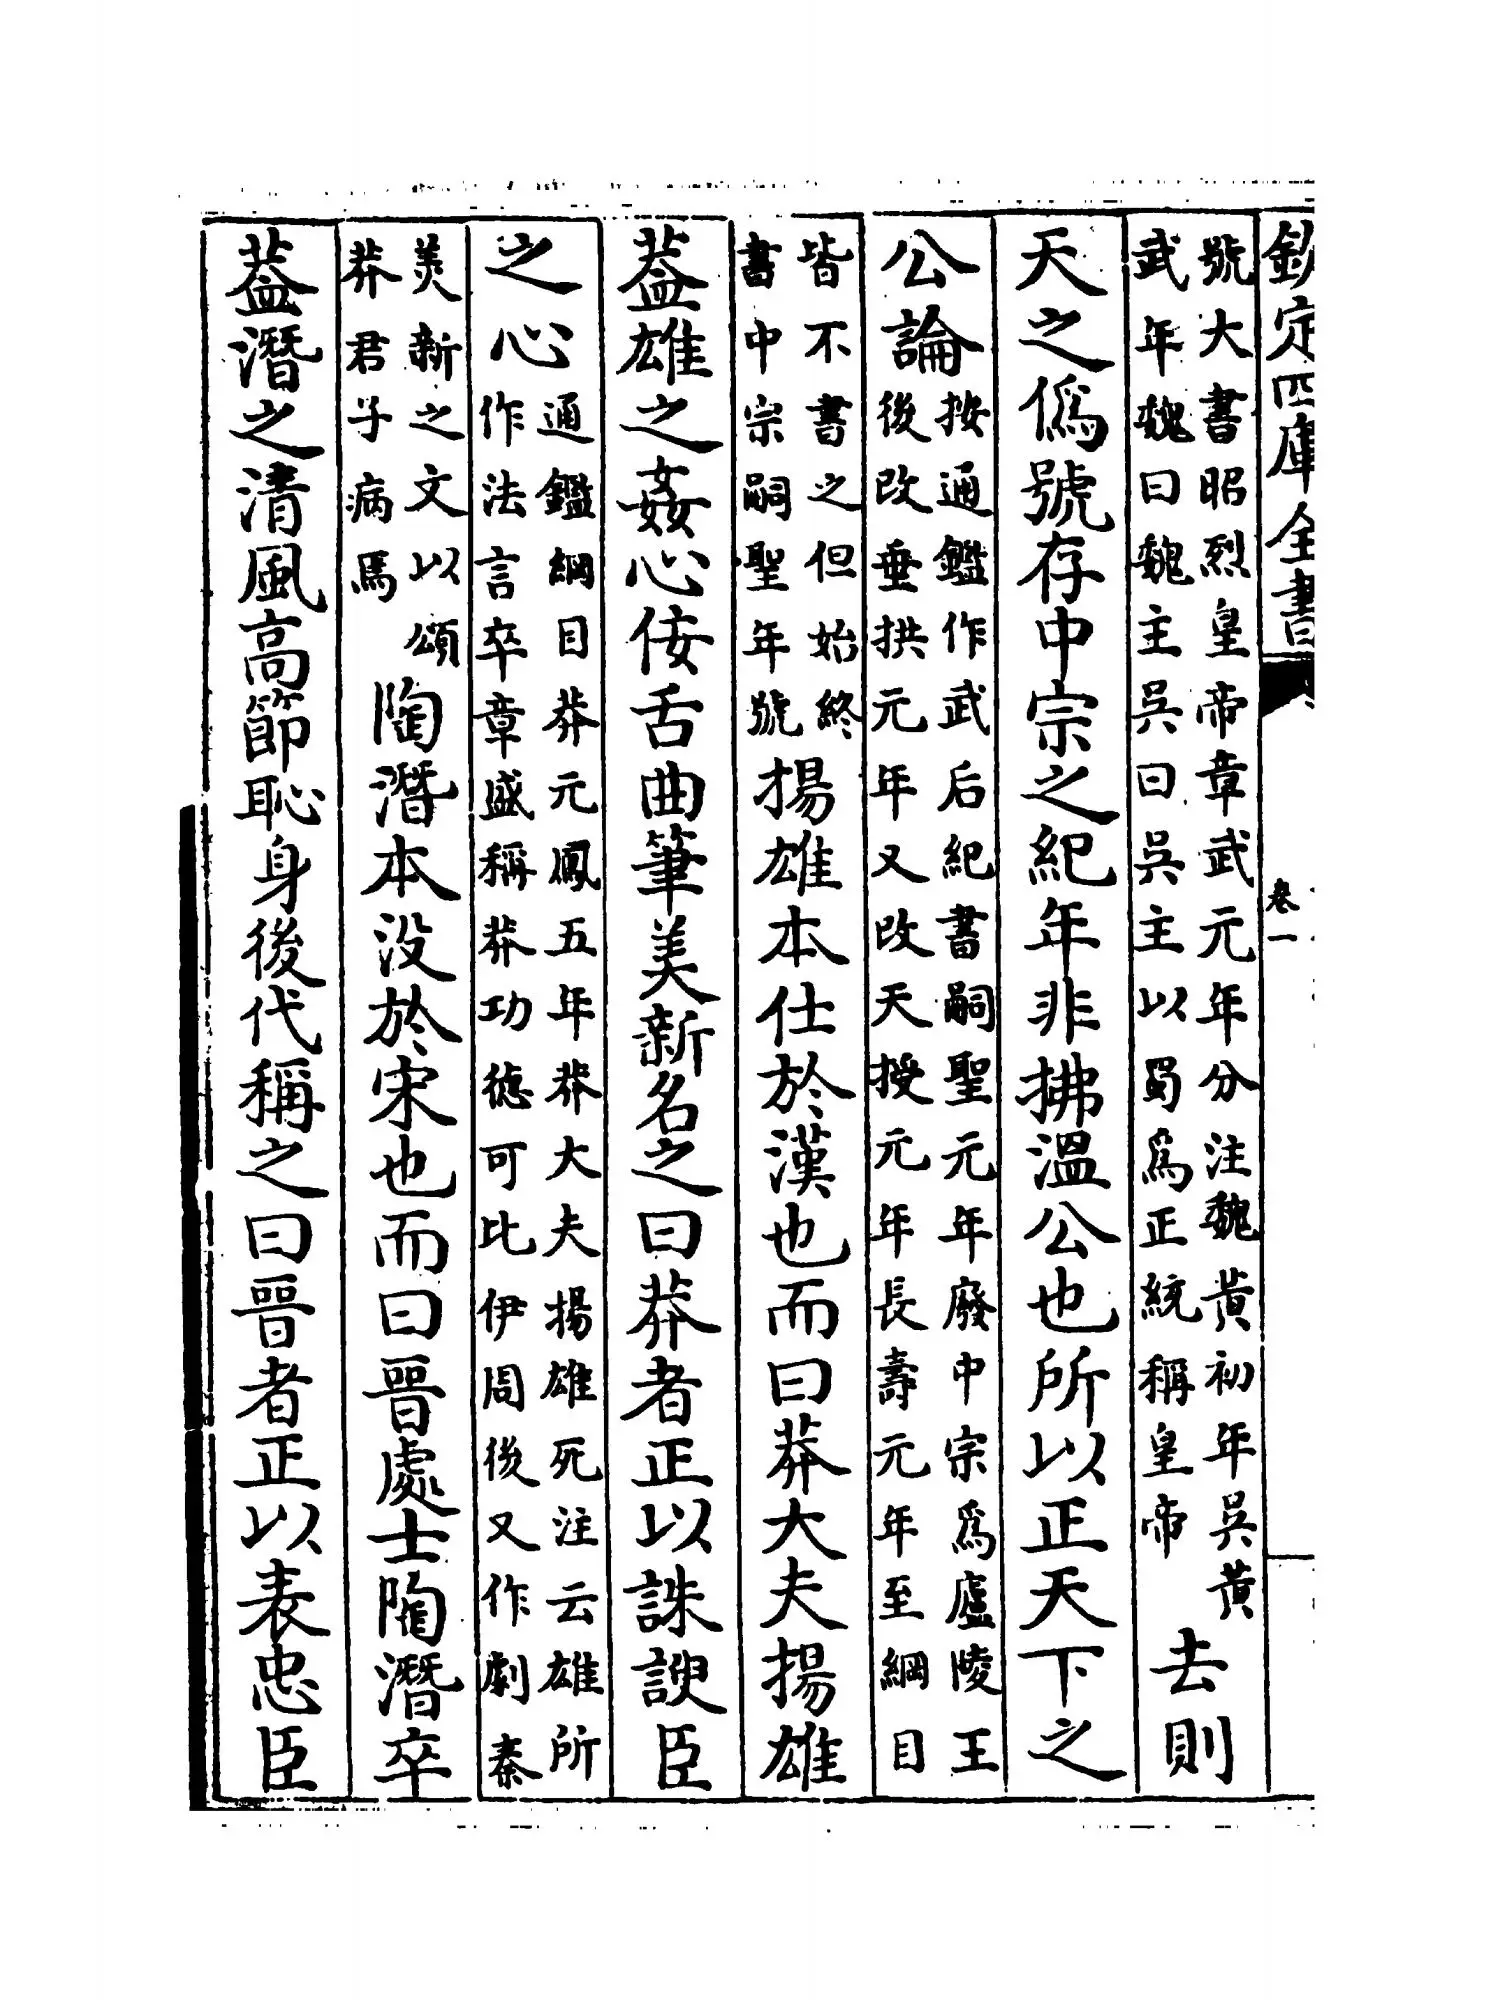 欽定四庫全書 卷一
號大書昭烈皇帝章武元年分注魏黃初年吳黃
武年魏曰魏主吳曰吳主以蜀為正統稱皇帝
去則
天之僞號存中宗之紀年非拂溫公也所以正天下之
公論
按通鑑作武后紀書嗣聖元年廢中宗為廬陵王
後改垂拱元年又改天授元年長壽元年至綱目
皆不書之但始終
書中宗嗣聖年號
揚雄本仕於漢也而曰莽大夫揚雄
葢雄之姦心佞舌曲筆美新名之曰莽者正以誅諛臣
之心
通鑑綱目莽元鳳五年莽大夫揚雄死注云雄所
作法言卒章盛稱莽功德可比伊周後又作劇秦
美新之文以頌
莽君子病焉
陶潛本没於宋也而曰晉處士陶潛卒
葢潛之清風高節恥身後代稱之曰晉者正以表忠臣